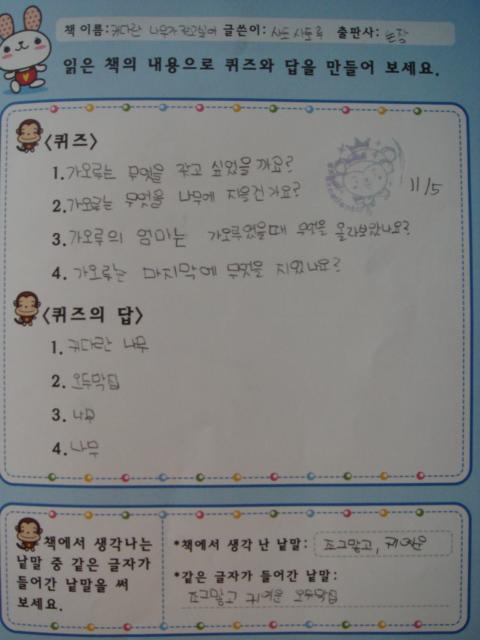 책 이름:커다란 나무가 갖고싶어 글쓴이:사토 사토루 출판사:논장
읽은 책의 내용으로 퀴즈와 답을 만들어 보세요.
<퀴즈>
1.가오루는 무엇을 갖고 싶었을까요?
2.가오루는 무엇을 나무에 지을건가요?
3.가오루의 엄마는 가오루였을때 무엇을 올라보았나요?
4.가오루는 마지막에 무엇을 지었나요?
11/5
<퀴즈의 답>
1.커다란 나무
2.오두막집
3.나무
4.나무
책에서 생각나는
낱말 중 같은 글자가
들어간 낱말을 써
보세요.
*책에서 생각 난 낱말: 조그맣고, 귀여운
*같은 글자가 들어간 낱말:
조그맣고 귀여운 오두막집